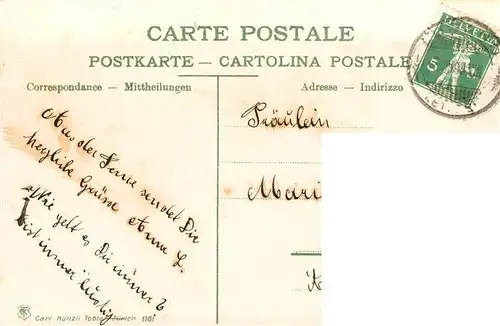 CARTE POSTALE
POSTKARTE – CARTOLINA POSTALE
Correspondance – Mittheilungen
Adresse – Indirizzo
HELVETIA
5
Fräulein
Mari
Aus der Ferne sendet Die
herzliche Grüsse Anna L.
Wie geht es Dir immer?
Bist immer lustig
Carl Künzli Tobler, Zürich 1161